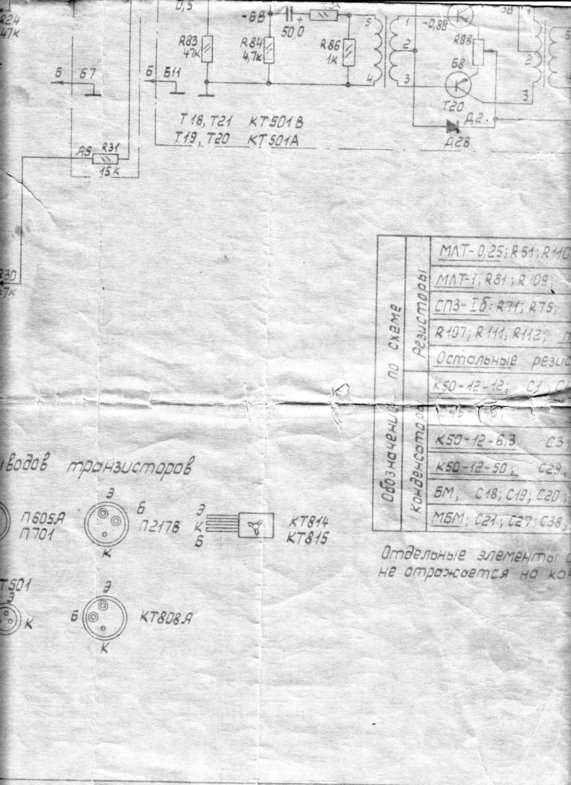 R24
47К
0,5
R83
47К
-6В
+
50,0
R84
4,7К
R86
1К
5
4
1
2
3
-0,8В
R88
Б8
Т20
Д2
Д28
3В
2
3
Б Б7
Б Б11
Т18, Т21 КТ501В
Т19, Т20 КТ501А
А5 R31
15К
R30
Обозначение по схеме
Резисторы
МЛТ-0,25; R51; R110
МЛТ-1; R81; R109
СП3-Iб: R71; R75;
R107; R111; R112;
Остальные резис
Конденсаторы
К50-12-12; С1
К50-12-6,3 С3
К50-12-50, С29,
БМ, С18; С19; С20
МБМ; С21; С27; С38,
Отдельные элементы
не отражается на
водов транзисторов
П605А
П701
Э
Б
К
П217В
Э
К
Б
КТ814
КТ815
Т501
Э
К
Э
Б
К
КТ808А